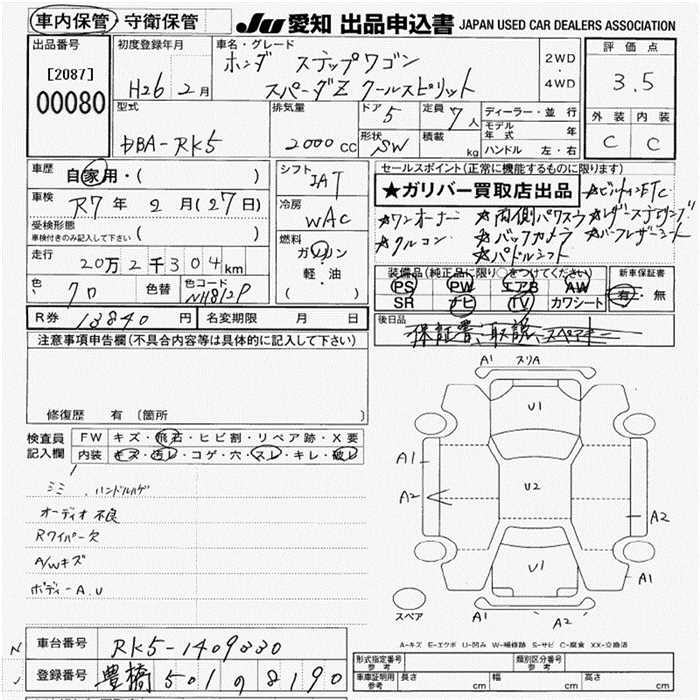 車内保管・守衛保管
JU 愛知 出品申込書 JAPAN USED CAR DEALERS ASSOCIATION
出品番号
[2087]
00080
初度登録年月
H26年 2月
車名・グレード
ホンダ ステップワゴン
スパーダZ クールスピリット
2WD
・
4WD
評価点
3.5
外装 内装
C C
型式
DBA-RK5
排気量
2000 CC
ドア
5
形状
SW
定員
7人
積載
kg
ディーラー・並行
モデル年式 年
ハンドル 左・右
車歴
自家用・( )
車検
R7年 2月(27日)
受検形態
車検付きのみ記入して下さい ( )
走行
20万2千304km
色
クロ
色替
色コード
NH812P
シフト
IAT
冷房
WAC
燃料
ガソリン
・
軽・油
( )
セールスポイント(正常に機能するものに限ります)
★ガリバー買取店出品 ★ビルトインETC
★ワンオーナー ★両側パワスラ ★レザーステアリング
★クルコン ★バックカメラ ★ハーフレザーシート
★パドルシフト
装備品(純正品に限り○をつけてください)
PS PW エアB AW
SR ナビ TV カワシート
新車保証書
有・無
R券 13840円
名変期限 月 日
後日品
保証書、取説、スペアキー
注意事項申告欄(不具合内容等は具体的に記入して下さい)
修復歴 有 〔箇所
検査員記入欄
FW キズ・飛石・ヒビ割・リペア跡・X要
内装 キズ・汚レ・コゲ・穴・スレ・キレ・破レ
シミ、ハンドルハゲ
オーディオ不良
Rワイパー欠
A/Wキズ
ボディーA.U
A1 スリA
U1
A1
A2
U2
A2
U1
A1
A2
スペア
A-キズ E-エクボ U-凹み W-補修跡 S-サビ C-腐食 XX-交換済
車台番号
RK5-1409330
登録番号
豊橋 501 の 8190
形式指定番号
参考
類別区分番号
参考
車庫証明用
参考
長さ cm
幅 cm
高さ cm